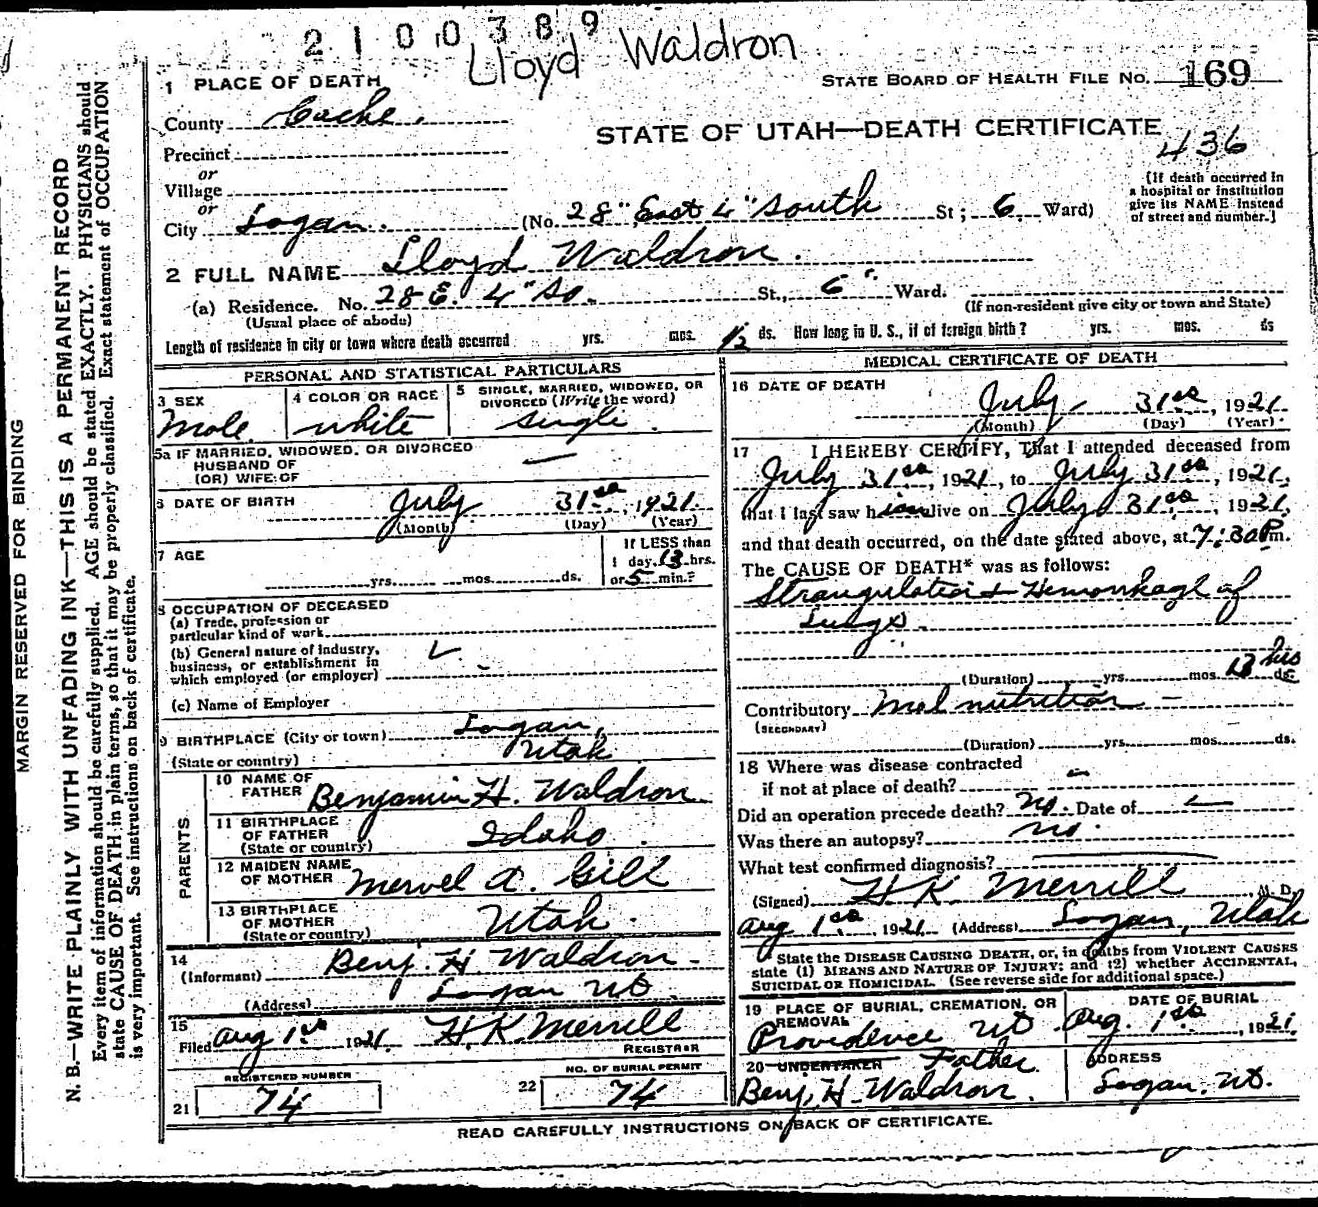 2100389
Lloyd Waldron
STATE BOARD OF HEALTH FILE NO. 169
1 PLACE OF DEATH
County Cache.
STATE OF UTAH—DEATH CERTIFICATE
436
Precinct
or
Village
or
City Logan. (No. 28" East 4" South St; 6 Ward)
(If death occurred in
a hospital or institution
give its NAME instead
of street and number.)
2 FULL NAME Lloyd Waldron.
(a) Residence. No. 28 E. 4" So. St., 6" Ward.
(Usual place of abode)
(If non-resident give city or town and State)
Length of residence in city or town where death occurred yrs. mos. 1/2 ds. How long in U. S., if of foreign birth? yrs. mos. ds
PERSONAL AND STATISTICAL PARTICULARS
3 SEX
Male.
4 COLOR OR RACE
white
5 SINGLE, MARRIED, WIDOWED, OR
DIVORCED (Write the word)
single.
5a IF MARRIED, WIDOWED, OR DIVORCED
HUSBAND OF
(OR) WIFE OF
6 DATE OF BIRTH July 31st 1921.
(Month) (Day) (Year)
7 AGE
yrs. mos. ds.
If LESS than
1 day, 13 hrs.
or 5 min.?
8 OCCUPATION OF DECEASED
(a) Trade, profession or
particular kind of work
(b) General nature of industry,
business, or establishment in
which employed (or employer)
(c) Name of Employer
9 BIRTHPLACE (City or town) Logan,
(State or country) Utah
PARENTS
10 NAME OF
FATHER Benjamin H. Waldron
11 BIRTHPLACE
OF FATHER
(State or country) Idaho.
12 MAIDEN NAME
OF MOTHER Mervel A. Gill
13 BIRTHPLACE
OF MOTHER
(State or country) Utah.
14
(Informant) Benj. H Waldron
(Address) Logan Ut.
15
Filed Aug 1st 1921. H. K. Merrill
REGISTRAR
REGISTERED NUMBER
21 74
NO. OF BURIAL PERMIT
22 74
MEDICAL CERTIFICATE OF DEATH
16 DATE OF DEATH
July 31st, 1921
(Month) (Day) (Year)
17 I HEREBY CERTIFY, That I attended deceased from
July 31st, 1921, to July 31st, 1921,
that I last saw him alive on July 31st, 1921,
and that death occurred, on the date stated above, at 7:30 P.m.
The CAUSE OF DEATH* was as follows:
Strangulation & Hemorrhage of
Lungs.
(Duration) yrs mos 13 hrs ds.
Contributory Mal nutrition
(SECONDARY)
(Duration) yrs. mos. ds.
18 Where was disease contracted
if not at place of death?
Did an operation precede death? no. Date of
Was there an autopsy? no.
What test confirmed diagnosis?
(Signed) H. K. Merrill M. D.
Aug 1st, 1921 (Address) Logan, Utah
State the DISEASE CAUSING DEATH, or, in deaths from VIOLENT CAUSES
state (1) MEANS AND NATURE OF INJURY; and (2) whether ACCIDENTAL,
SUICIDAL OR HOMICIDAL. (See reverse side for additional space.)
19 PLACE OF BURIAL, CREMATION, OR
REMOVAL
Providence Ut.
DATE OF BURIAL
Aug. 1st, 1921.
20 UNDERTAKER Father
Benj. H. Waldron.
ADDRESS
Logan, Ut.
READ CAREFULLY INSTRUCTIONS ON BACK OF CERTIFICATE.
MARGIN RESERVED FOR BINDING
N. B.—WRITE PLAINLY WITH UNFADING INK—THIS IS A PERMANENT RECORD
Every item of information should be carefully supplied. AGE should be stated EXACTLY. PHYSICIANS should
state CAUSE OF DEATH in plain terms, so that it may be properly classified. Exact statement of OCCUPATION
is very important. See instructions on back of certificate.